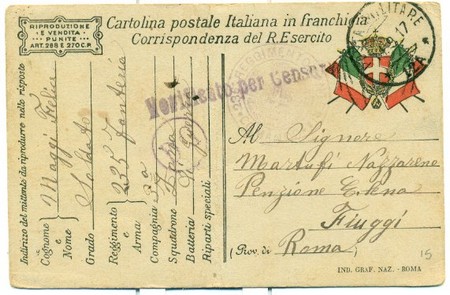 RIPRODUZIONE
E VENDITA
PUNITE
ART. 288 E 270 C.P.
Cartolina postale Italiana in franchigia
Corrispondenza del R. Esercito
MILITARE
17
Verificato per Censura
Indirizzo del mittente da riprodurre nelle risposte
Cognome e Nome Maggi Felice
Grado Soldato
Reggimento e Arma 235 Fanteria
Compagnia 3a
Squadrone
Batteria
Riparti speciali
Al Signore
Martufi Nazzareno
Penzione Erlena
Fiuggi
(Prov. di Roma)
15
IND. GRAF. NAZ. - ROMA